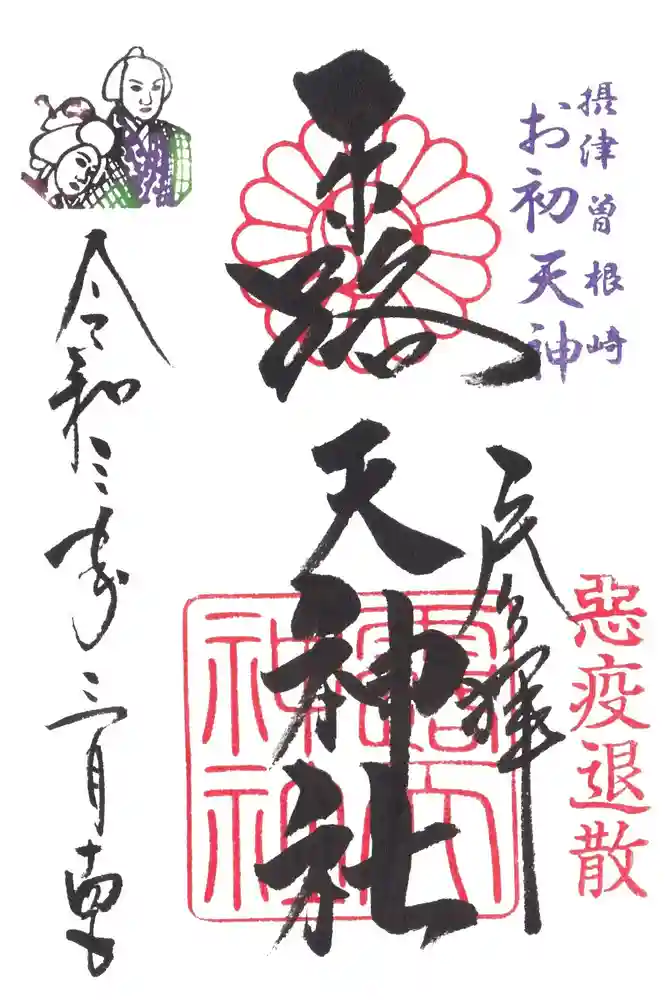 摂津 曽根崎
お初天神
惡疫退散
露天神社
露天
神社
令和三年三月